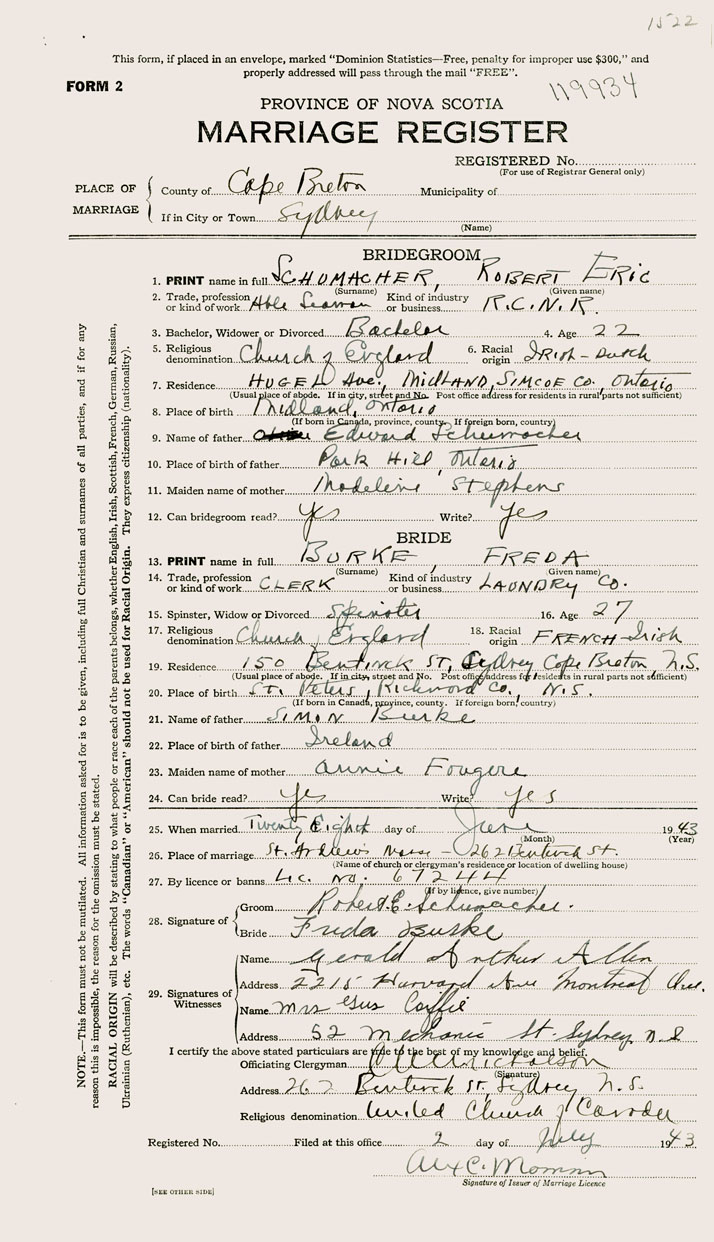 1522
This form, if placed in an envelope, marked "Dominion Statistics—Free, penalty for improper use $300," and
properly addressed will pass through the mail "FREE".
FORM 2
119934
PROVINCE OF NOVA SCOTIA
MARRIAGE REGISTER
REGISTERED No.
(For use of Registrar General only)
PLACE OF MARRIAGE
County of Cape Breton Municipality of
If in City or Town Sydney
(Name)
BRIDEGROOM
1. PRINT name in full SCHUMACHER, ROBERT ERIC
(Surname) (Given name)
2. Trade, profession or kind of work Able Seaman Kind of industry or business R.C.N.R.
3. Bachelor, Widower or Divorced Bachelor 4. Age 22
5. Religious denomination Church of England 6. Racial origin IRISH-Dutch
7. Residence HUGEL Ave., MIDLAND, SIMCOE CO., ONTARIO
(Usual place of abode. If in city, street and No. Post office address for residents in rural parts not sufficient)
8. Place of birth Midland, Ontario
(If born in Canada, province, county. If foreign born, country)
9. Name of father Edward Schumacher
10. Place of father Park Hill, Ontario
11. Maiden name of mother Madeline Stephens
12. Can bridegroom read? Yes Write? Yes
BRIDE
13. PRINT name in full BURKE, FREDA
(Surname) (Given name)
14. Trade, profession or kind of work CLERK Kind of industry or business LAUNDRY CO.
15. Spinster, Widow or Divorced Spinster 16. Age 27
17. Religious denomination Church of England 18. Racial origin FRENCH-Irish
19. Residence 150 Bentinck St, Sydney Cape Breton, N.S.
(Usual place of abode. If in city, street and No. Post office address for residents in rural parts not sufficient)
20. Place of birth St. Peters, Richmond Co., N.S.
(If born in Canada, province, county. If foreign born, country)
21. Name of father SIMON Burke
22. Place of birth of father Ireland
23. Maiden name of mother Annie Fougere
24. Can bride read? Yes Write? Yes
25. When married Twenty Eight day of June 1943
(Month) (Year)
26. Place of marriage St. Andrews Manse - 262 Bentinck St.
(Name of church or clergyman's residence or location of dwelling house)
27. By licence or banns Lic. No. 67244
(If by licence, give number)
28. Signature of
Groom Robert E. Schumacher.
Bride Freda Burke
29. Signatures of Witnesses
Name Gerald Arthur Allen
Address 2215 Harvard Ave Montreal Que.
Name Mrs Gus Coffie
Address 52 Mechanic St. Sydney N.S
I certify the above stated particulars are true to the best of my knowledge and belief.
Officiating Clergyman Nicholson
(Signature)
Address 262 Bentinck St, Sydney N.S.
Religious denomination United Church of Canada
Registered No. Filed at this office 2 day of July 1943
Alex C.
Signature of Issuer of Marriage Licence
[SEE OTHER SIDE]
NOTE.—This form must not be mutilated. All information asked for is to be given, including full Christian and surnames of all parties, and if for any
reason this is impossible, the reason for the omission must be stated.
RACIAL ORIGIN will be described by stating to what people or race each of the parents belongs, whether English, Irish, Scottish, French, German, Russian,
Ukrainian (Ruthenian), etc. The words "Canadian" or "American" should not be used for Racial Origin. They express citizenship (nationality).